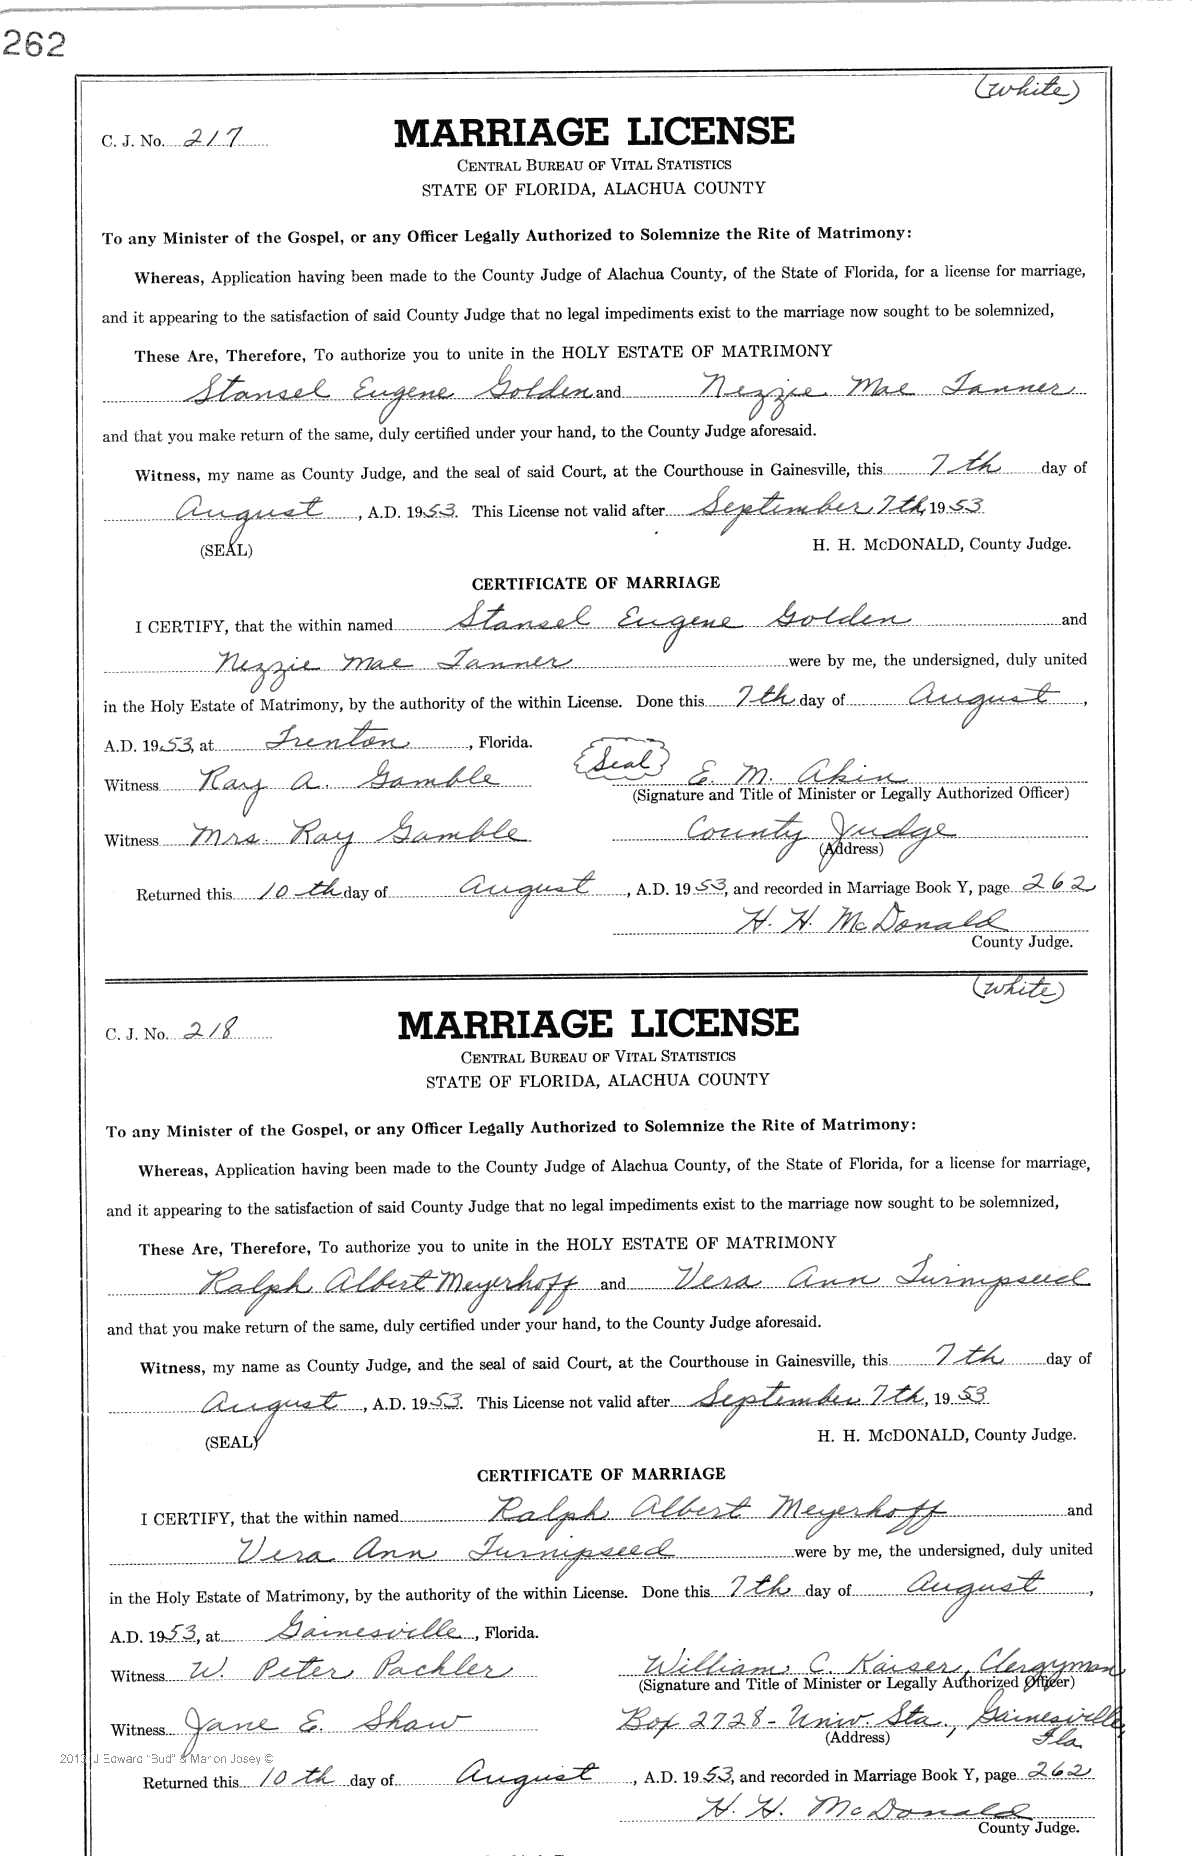 262
(White)
C. J. No. 217
MARRIAGE LICENSE
CENTRAL BUREAU OF VITAL STATISTICS
STATE OF FLORIDA, ALACHUA COUNTY
To any Minister of the Gospel, or any Officer Legally Authorized to Solemnize the Rite of Matrimony:
Whereas, Application having been made to the County Judge of Alachua County, of the State of Florida, for a license for marriage,
and it appearing to the satisfaction of said County Judge that no legal impediments exist to the marriage now sought to be solemnized,
These Are, Therefore, To authorize you to unite in the HOLY ESTATE OF MATRIMONY
Stansel Eugene Golden and Nezzie Mae Tanner
and that you make return of the same, duly certified under your hand, to the County Judge aforesaid.
Witness, my name as County Judge, and the seal of said Court, at the Courthouse in Gainesville, this 7th day of
August, A.D. 1953. This License not valid after September 7th, 1953
(SEAL) H. H. McDONALD, County Judge.
CERTIFICATE OF MARRIAGE
I CERTIFY, that the within named Stansel Eugene Golden and
Nezzie Mae Tanner were by me, the undersigned, duly united
in the Holy Estate of Matrimony, by the authority of the within License. Done this 7th day of August,
A.D. 1953, at Trenton, Florida.
Witness Ray A. Gamble (Seal) E. M. Akin
(Signature and Title of Minister or Legally Authorized Officer)
Witness Mrs. Ray Gamble County Judge
(Address)
Returned this 10th day of August, A.D. 1953, and recorded in Marriage Book Y, page 262
H. H. McDonald
County Judge.
(White)
C. J. No. 218
MARRIAGE LICENSE
CENTRAL BUREAU OF VITAL STATISTICS
STATE OF FLORIDA, ALACHUA COUNTY
To any Minister of the Gospel, or any Officer Legally Authorized to Solemnize the Rite of Matrimony:
Whereas, Application having been made to the County Judge of Alachua County, of the State of Florida, for a license for marriage,
and it appearing to the satisfaction of said County Judge that no legal impediments exist to the marriage now sought to be solemnized,
These Are, Therefore, To authorize you to unite in the HOLY ESTATE OF MATRIMONY
Ralph Albert Meyerhoff and Vera Ann Turnipseed
and that you make return of the same, duly certified under your hand, to the County Judge aforesaid.
Witness, my name as County Judge, and the seal of said Court, at the Courthouse in Gainesville, this 7th day of
August, A.D. 1953. This License not valid after September 7th, 1953
(SEAL) H. H. McDONALD, County Judge.
CERTIFICATE OF MARRIAGE
I CERTIFY, that the within named Ralph Albert Meyerhoff and
Vera Ann Turnipseed were by me, the undersigned, duly united
in the Holy Estate of Matrimony, by the authority of the within License. Done this 7th day of August,
A.D. 1953, at Gainesville, Florida.
Witness W. Peter Pachler William C. Kaiser, Clergyman
(Signature and Title of Minister or Legally Authorized Officer)
Witness Jane E. Shaw Box 2728 - Univ Sta., Gainesville,
(Address) Fla
2013 J Edward "Bud" & Marion Josey ©
Returned this 10th day of August, A.D. 1953, and recorded in Marriage Book Y, page 262
H. H. McDonald
County Judge.